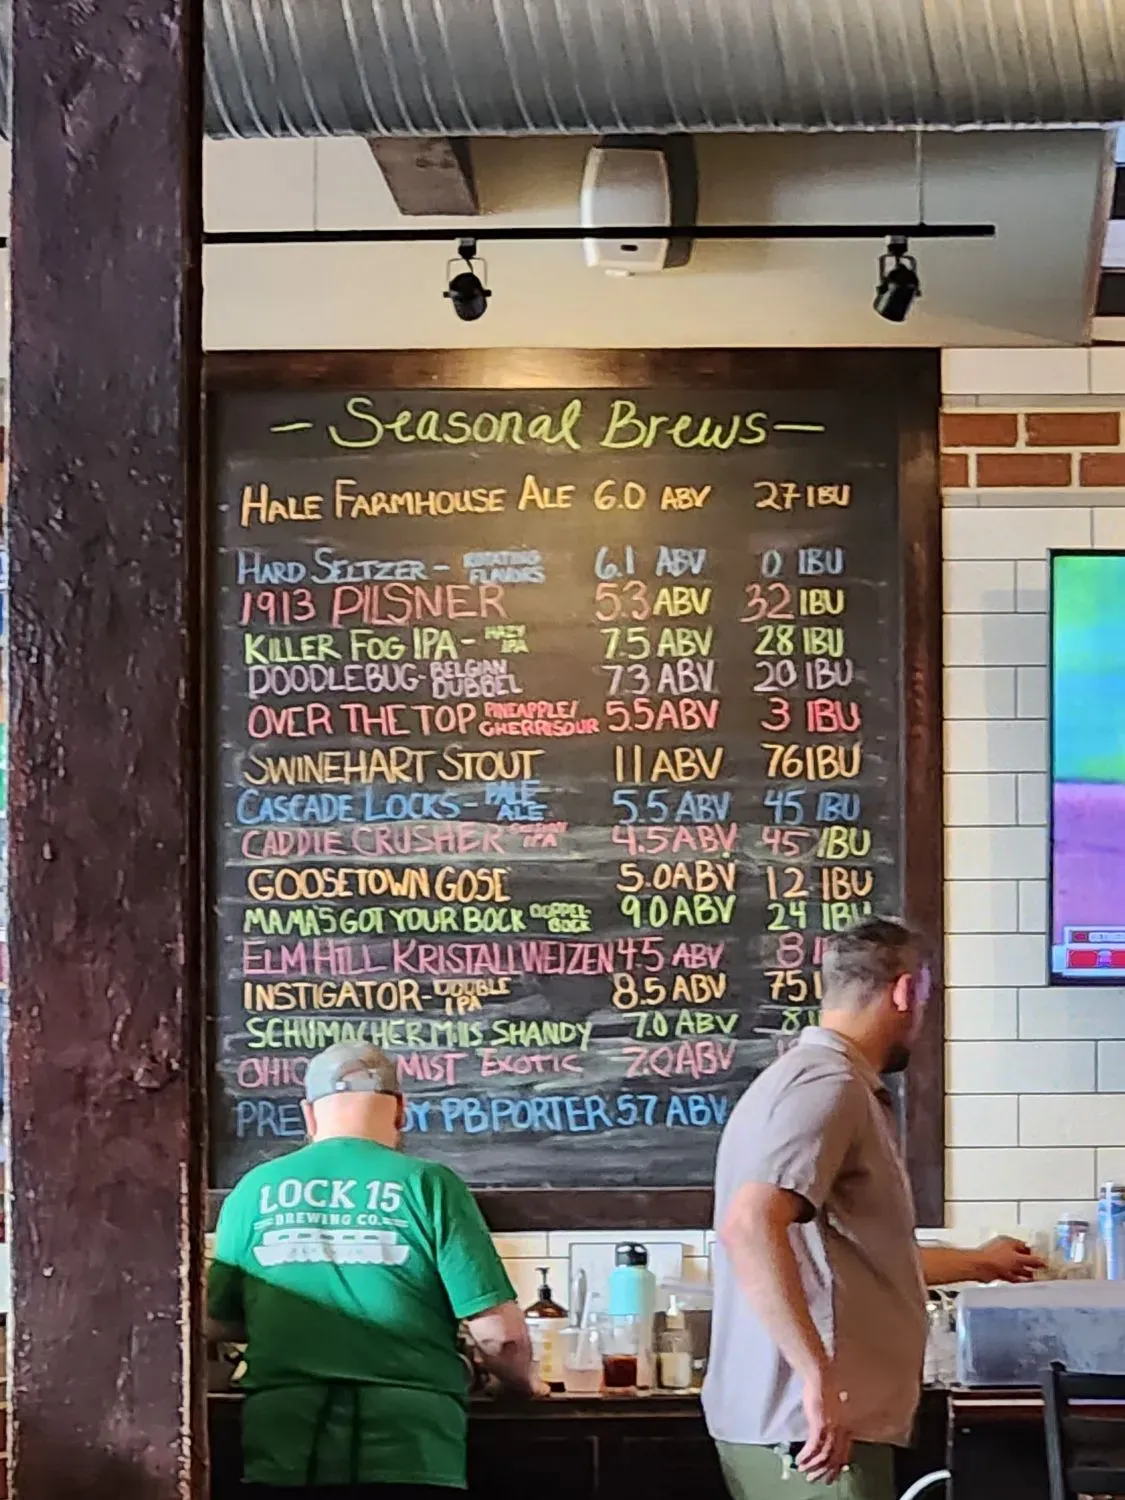 — Seasonal Brews —
HALE FARMHOUSE ALE 6.0 ABV 27 IBU
HARD SELTZER - ROTATING FLAVORS 6.1 ABV 0 IBU
1913 PILSNER 5.3 ABV 32 IBU
KILLER FOG IPA - HAZY IPA 7.5 ABV 28 IBU
DOODLEBUG - BELGIAN DUBBEL 7.3 ABV 20 IBU
OVER THE TOP PINEAPPLE/ CHERRY SOUR 5.5 ABV 3 IBU
SWINEHART STOUT 11 ABV 76 IBU
CASCADE LOCKS - PALE ALE 5.5 ABV 45 IBU
CADDIE CRUSHER IPA 4.5 ABV 45 IBU
GOOSETOWN GOSE 5.0 ABV 12 IBU
MAMA'S GOT YOUR BOCK DOPPEL BOCK 9.0 ABV 24 IBU
ELM HILL KRISTALLWEIZEN 4.5 ABV 8 I
INSTIGATOR - DOUBLE IPA 8.5 ABV 75 I
SCHUMACHER MILLS SHANDY 7.0 ABV 8
OHIO MIST EXOTIC 7.0 ABV
PRE DY PB PORTER 57 ABV
LOCK 15
BREWING CO.